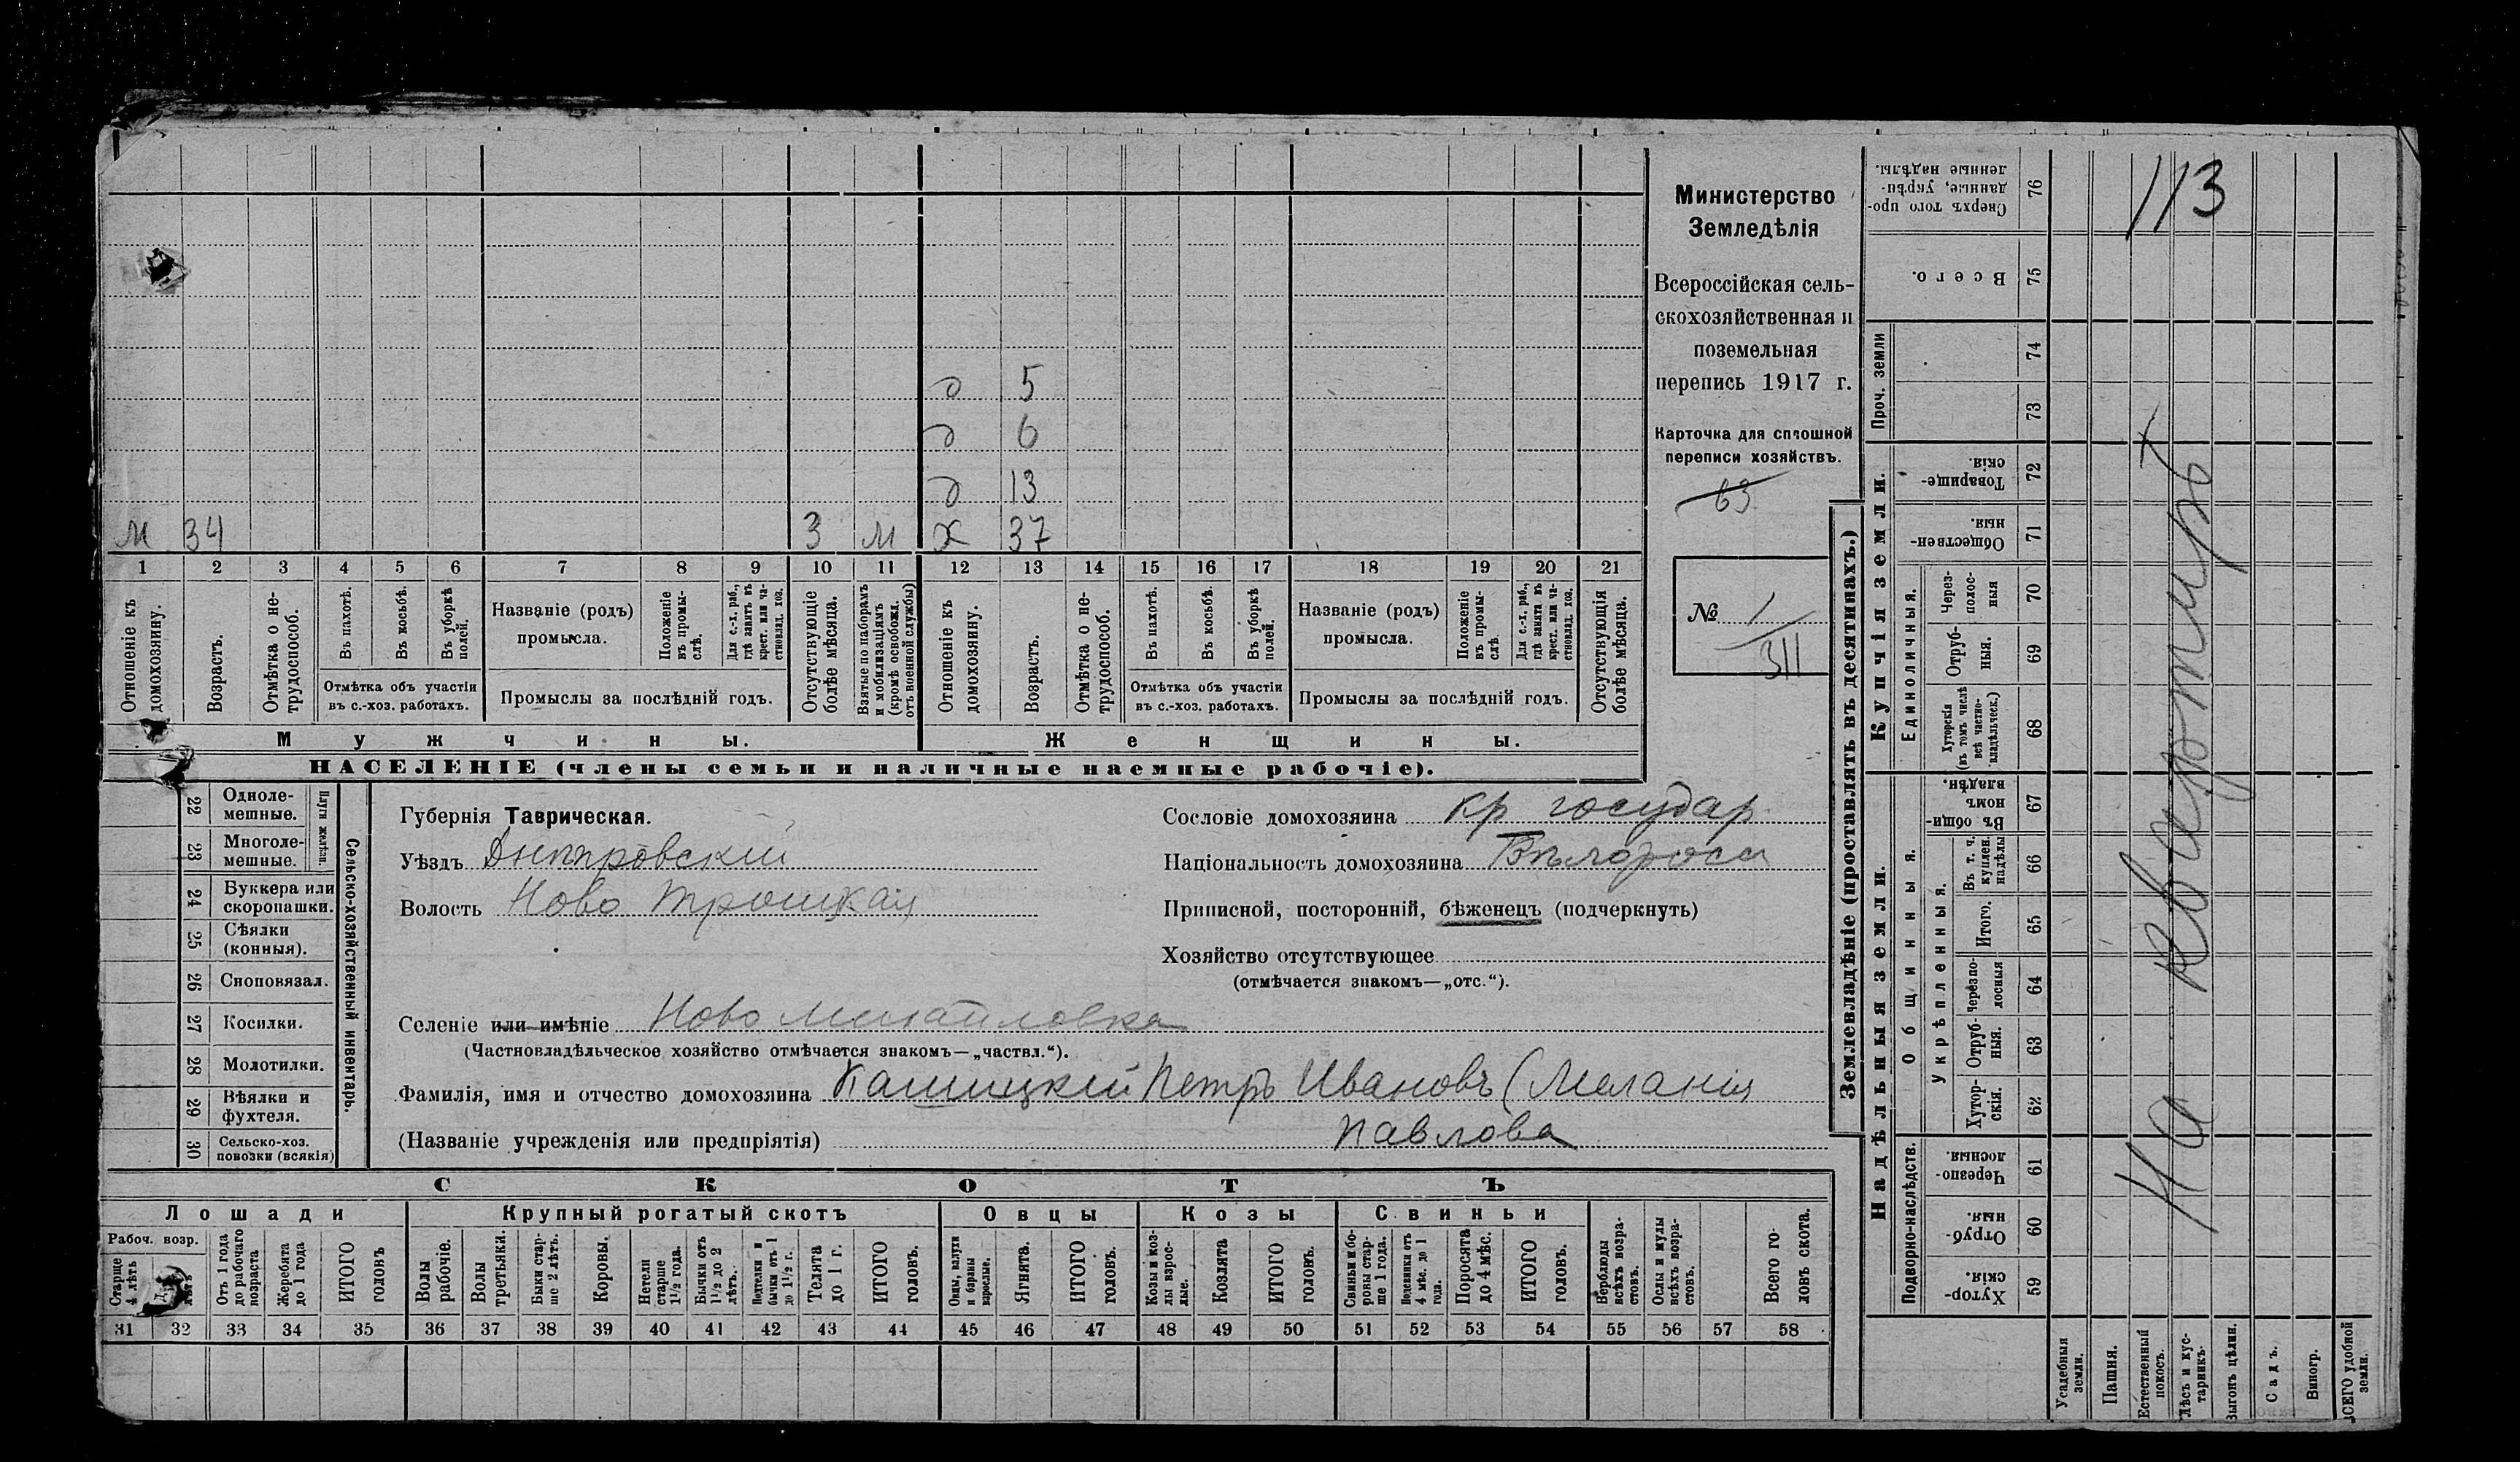 113
д 5
д 6
д 13
м 34 3 м х 37
1 2 3 4 5 6 7 8 9 10 11 12 13 14 15 16 17 18 19 20 21
Отношеніе къ домохозяину.
Возрастъ.
Отмѣтка о не-
трудоспособ.
Въ пахотѣ.
Въ косьбѣ.
Въ уборкѣ полей.
Отмѣтка объ участіи
въ с.-хоз. работахъ.
Названіе (родъ)
промысла.
Положеніе
въ промы-
слѣ.
Для с.-х. раб.,
гдѣ занятъ въ
крест. или ча-
стновлад. хоз.
Промыслы за послѣдній годъ.
Отсутствующіе
болѣе мѣсяца.
Взятые по наборамъ
и мобилизаціямъ
(кромѣ освобожд.
отъ военной службы)
Отношеніе къ
домохозяину.
Возрастъ.
Отмѣтка о не-
трудоспособ.
Въ пахотѣ.
Въ косьбѣ.
Въ уборкѣ
полей.
Отмѣтка объ участіи
въ с.-хоз. работахъ.
Названіе (родъ)
промысла.
Положеніе
въ промы-
слѣ
Для с.-х. раб.,
гдѣ занята въ
крест. или ча-
стновлад. хоз.
Промыслы за послѣдній годъ.
Отсутствующія
болѣе мѣсяца.
Мужчины.
Женщины.
НАСЕЛЕНІЕ (члены семьи и наличные наемные рабочіе).
Министерство
Земледѣлія
Всероссійская сель-
скохозяйственная и
поземельная
перепись 1917 г.
Карточка для сплошной
переписи хозяйствъ.
63
№ 1
311
22 Одноле-
мешные.
23 Многоле-
мешные.
Плуги желѣзн.
24 Буккера или
скоропашки.
25 Сѣялки
(конныя).
26 Сноповязал.
27 Косилки.
28 Молотилки.
29 Вѣялки и
фухтеля.
30 Сельско-хоз.
повозки (всякія)
Сельско-хозяйственный инвентарь.
Губернія Таврическая.
Уѣздъ Днѣпровскій
Волость Ново Троицкая
Сословіе домохозяина кр государ
Національность домохозяина Бѣлоросы
Приписной, посторонній, бѣженецъ (подчеркнуть)
Хозяйство отсутствующее
(отмѣчается знакомъ—„отс.“).
Селеніе или имѣніе Ново Михайловка
(Частновладѣльческое хозяйство отмѣчается знакомъ—„частвл.“).
Фамилія, имя и отчество домохозяина Кашицкій Петръ Ивановъ (Меланія
(Названіе учрежденія или предпріятія) Павлова
СКОТЪ
Лошади
Крупный рогатый скотъ
Овцы
Козы
Свиньи
Рабоч. возр.
Старше
4 лѣтъ
Отъ 1 года
до рабочаго
возраста
Жеребята
до 1 года
ИТОГО
головъ
Волы
рабочіе.
Волы
третьяки.
Быки стар-
ше 2 лѣтъ.
Коровы.
Нетели
старше
1½ года.
Бычки отъ
1½ до 2
лѣтъ.
Подтелки и
бычки отъ 1
до 1½ г.
Телята
до 1 г.
ИТОГО
головъ.
Овцы, валухи
и бараны
взрослые.
Ягнята.
ИТОГО
головъ.
Козы и коз-
лы взрос-
лые.
Козлята
ИТОГО
головъ.
Свиньи и бо-
ровы стар-
ше 1 года.
Подсвинки отъ
4 мѣс. до 1
года.
Поросята
до 4 мѣс.
ИТОГО
головъ.
Верблюды
всѣхъ возра-
стовъ.
Ослы и мулы
всѣхъ возра-
стовъ.
Всего го-
ловъ скота.
31 32 33 34 35 36 37 38 39 40 41 42 43 44 45 46 47 48 49 50 51 52 53 54 55 56 57 58
Землевладѣніе (проставлять въ десятинахъ.)
Надѣльныя земли.
Купчія земли.
Проч. земли
Подворно-наслѣдств.
Общинныя.
Укрѣпленныя.
Единоличныя.
Хутор-
скія. 59
Отруб-
ныя. 60
Черезпо-
лосныя 61
Хутор-
скія. 62
Отруб-
ныя. 63
Черезпо-
лосныя 64
Итого. 65
Въ т. ч.
куплен.
надѣлы 66
Въ общин-
номъ
владѣн. 67
Хуторскія
(въ томъ числѣ
всѣ частно-
владѣльческ.) 68
Отруб-
ныя. 69
Через-
полос-
ныя 70
Обществен-
ныя. 71
Товарище-
скія. 72
73
74
Всего. 75
Сверхъ того про-
данные, укрѣп-
ленные надѣлы. 76
На квартирѣ
Усадебныя
земли.
Пашня.
Естественный
покосъ.
Лѣсъ и кус-
тарникъ.
Выгонъ цѣлин.
Садъ.
Виногр.
ВСЕГО удобной
земли.